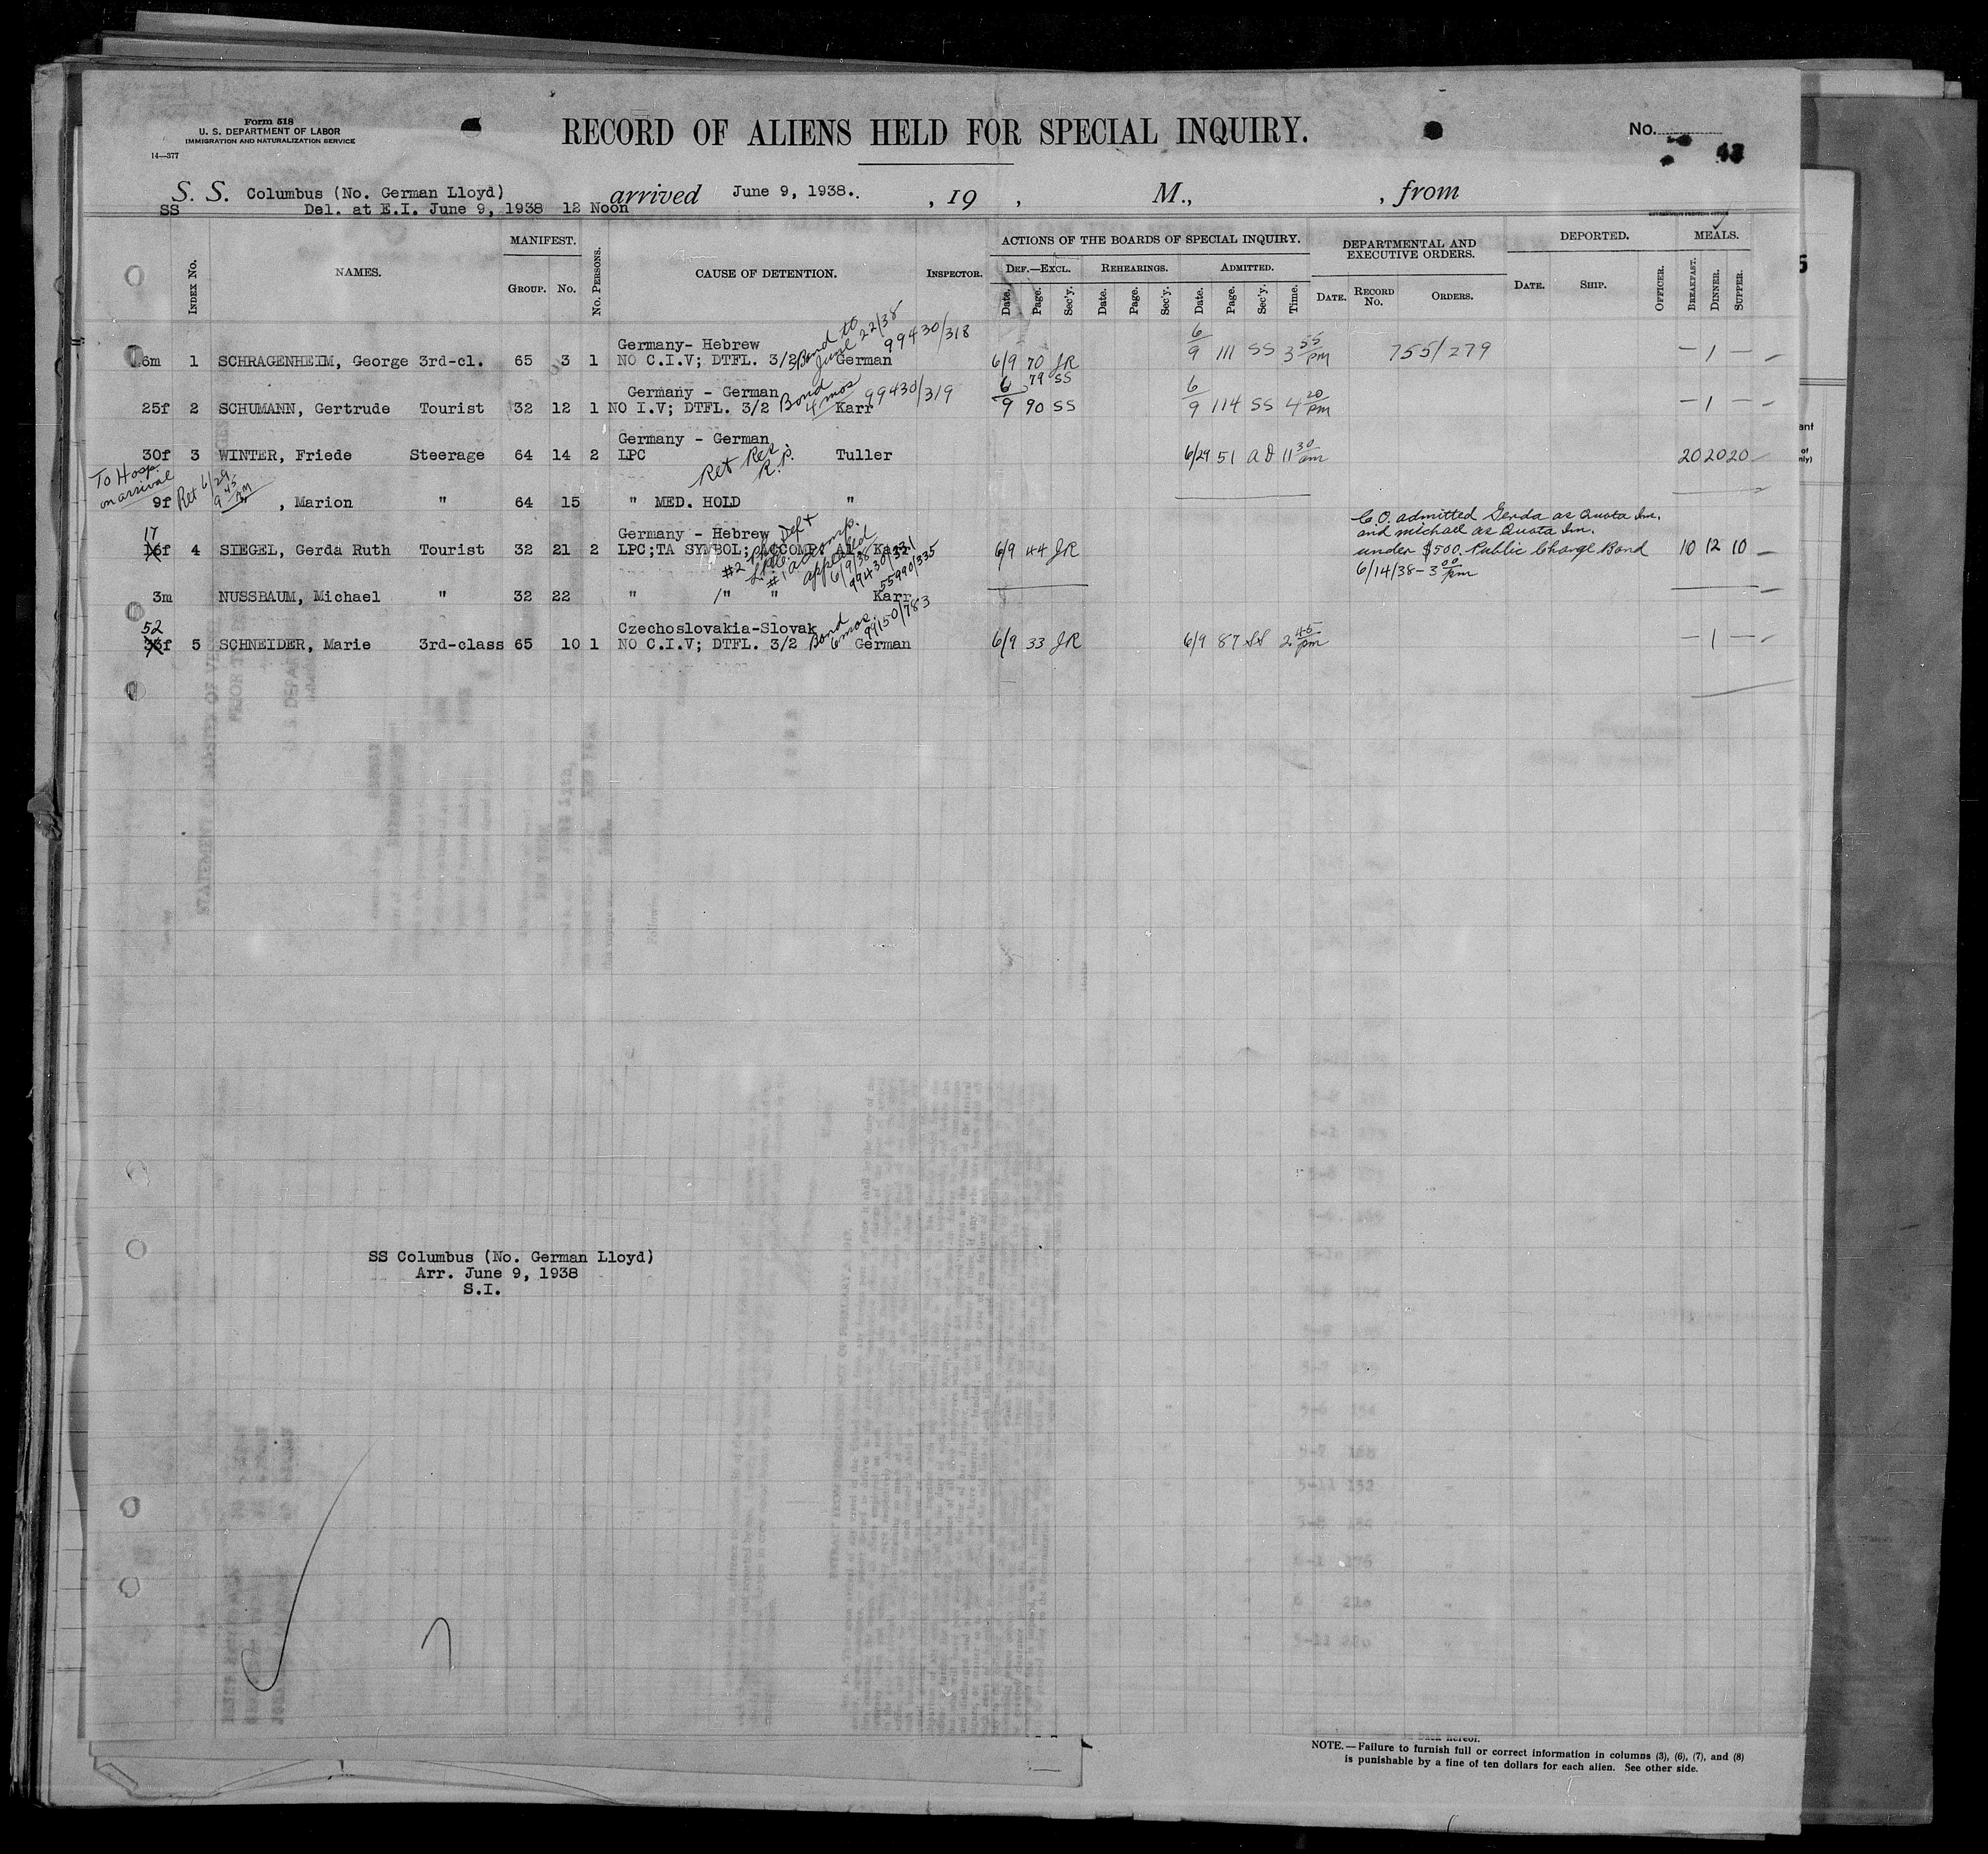 Form 518
U. S. DEPARTMENT OF LABOR
IMMIGRATION AND NATURALIZATION SERVICE
14—377
RECORD OF ALIENS HELD FOR SPECIAL INQUIRY.
No.
43
S. S. Columbus (No. German Lloyd) arrived June 9, 1938. , 19 , M., , from
SS Del. at E.I. June 9, 1938 12 Noon
INDEX No. NAMES. MANIFEST. GROUP. No. No. PERSONS. CAUSE OF DETENTION. INSPECTOR.
ACTIONS OF THE BOARDS OF SPECIAL INQUIRY.
DEF.—EXCL. Date. Page. Sec'y. REHEARINGS. Date. Page. Sec'y. ADMITTED. Date. Page. Sec'y. Time.
DEPARTMENTAL AND EXECUTIVE ORDERS. DATE. RECORD No. ORDERS.
DEPORTED. DATE. SHIP. OFFICER.
MEALS. BREAKFAST. DINNER. SUPPER.
Germany- Hebrew Bond to June 22/38 99430/318
6m 1 SCHRAGENHEIM, George 3rd-cl. 65 3 1 NO C.I.V; DTFL. 3/2 German 6/9 70 JR 6/9 111 SS 3 55 pm 755/279 — 1 —
Germany - German Bond 4 mos 99430/319 6/9 79 SS
25f 2 SCHUMANN, Gertrude Tourist 32 12 1 NO I.V; DTFL. 3/2 Karr 90 SS 6/9 114 SS 4 20 pm — 1 —
Germany - German
30f 3 WINTER, Friede Steerage 64 14 2 LPC Ret Rec R.P. Tuller 6/29 51 AD 11 30 am 20 20 20
To Hosp. on arrival Ret 6/29 9 45 AM
9f , Marion " 64 15 " MED. HOLD "
17 Germany - Hebrew
16f 4 SIEGEL, Gerda Ruth Tourist 32 21 2 LPC;TA SYMBOL; ACCOMP. Al. Karr 6/9 44 JR 10 12 10
#1 accomp. appealed 6/9/38 99430/321 55990/335
C.O. admitted Gerda as Quota Im.
and Michael as Quota Im.
under $500. Public Charge Bond
6/14/38 - 3 00 pm
3m NUSSBAUM, Michael " 32 22 " /" " Karr
52 Czechoslovakia-Slovak Bond 6 mos. 99150/783
5 SCHNEIDER, Marie 3rd-class 65 10 1 NO C.I.V; DTFL. 3/2 German 6/9 33 JR 6/9 87 SS 2 45 pm — 1 —
SS Columbus (No. German Lloyd)
Arr. June 9, 1938
S.I.
NOTE.—Failure to furnish full or correct information in columns (3), (6), (7), and (8)
is punishable by a fine of ten dollars for each alien. See other side.